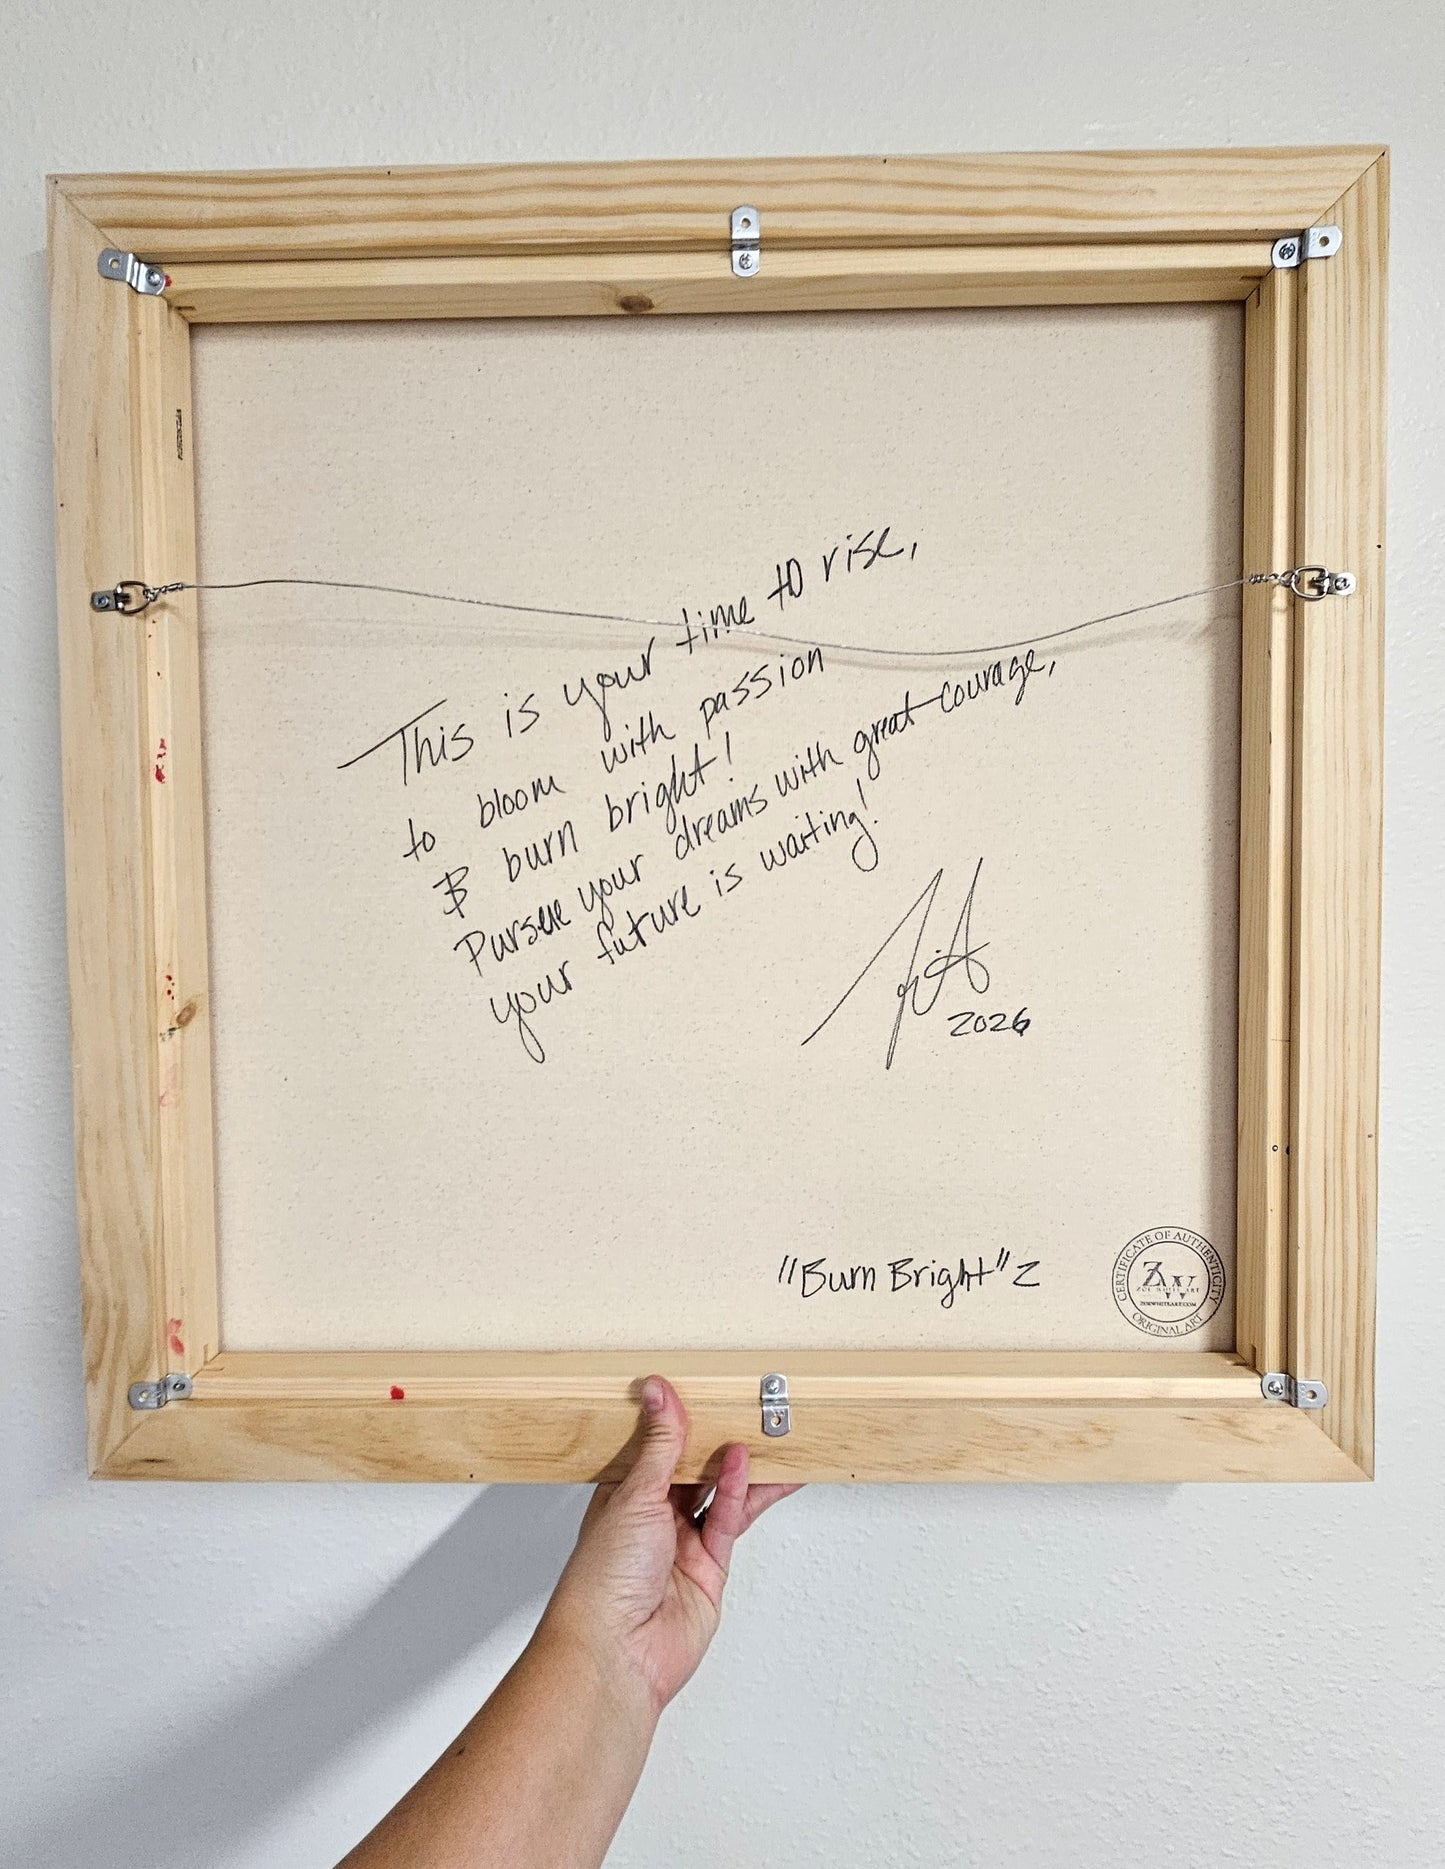 This is your time to rise,
to bloom with passion
& burn bright!
Pursue your dreams with great courage,
your future is waiting!
2026
"Burn Bright" Z
CERTIFICATE OF AUTHENTICITY
ZW
ZOE WHITE ART
ZOEWHITEART.COM
ORIGINAL ART